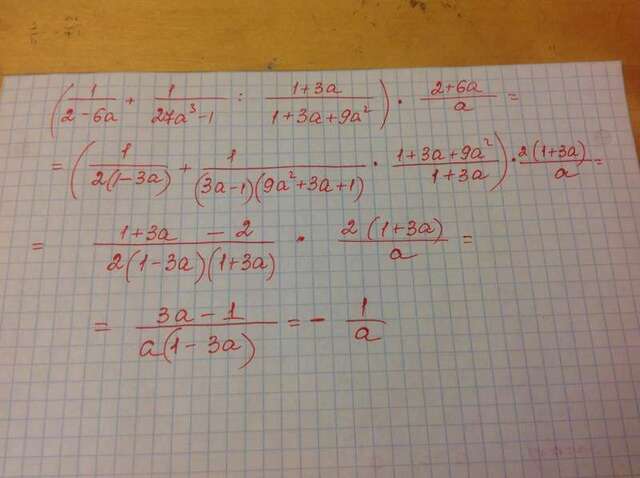 (1/(2-6a) + 1/(27a³-1) : (1+3a)/(1+3a+9a²)) · (2+6a)/a =
= (1/(2(1-3a)) + 1/((3a-1)(9a²+3a+1)) · (1+3a+9a²)/(1+3a)) · 2(1+3a)/a =
= (1+3a -2)/(2(1-3a)(1+3a)) · 2(1+3a)/a =
= (3a-1)/(a(1-3a)) = - 1/a